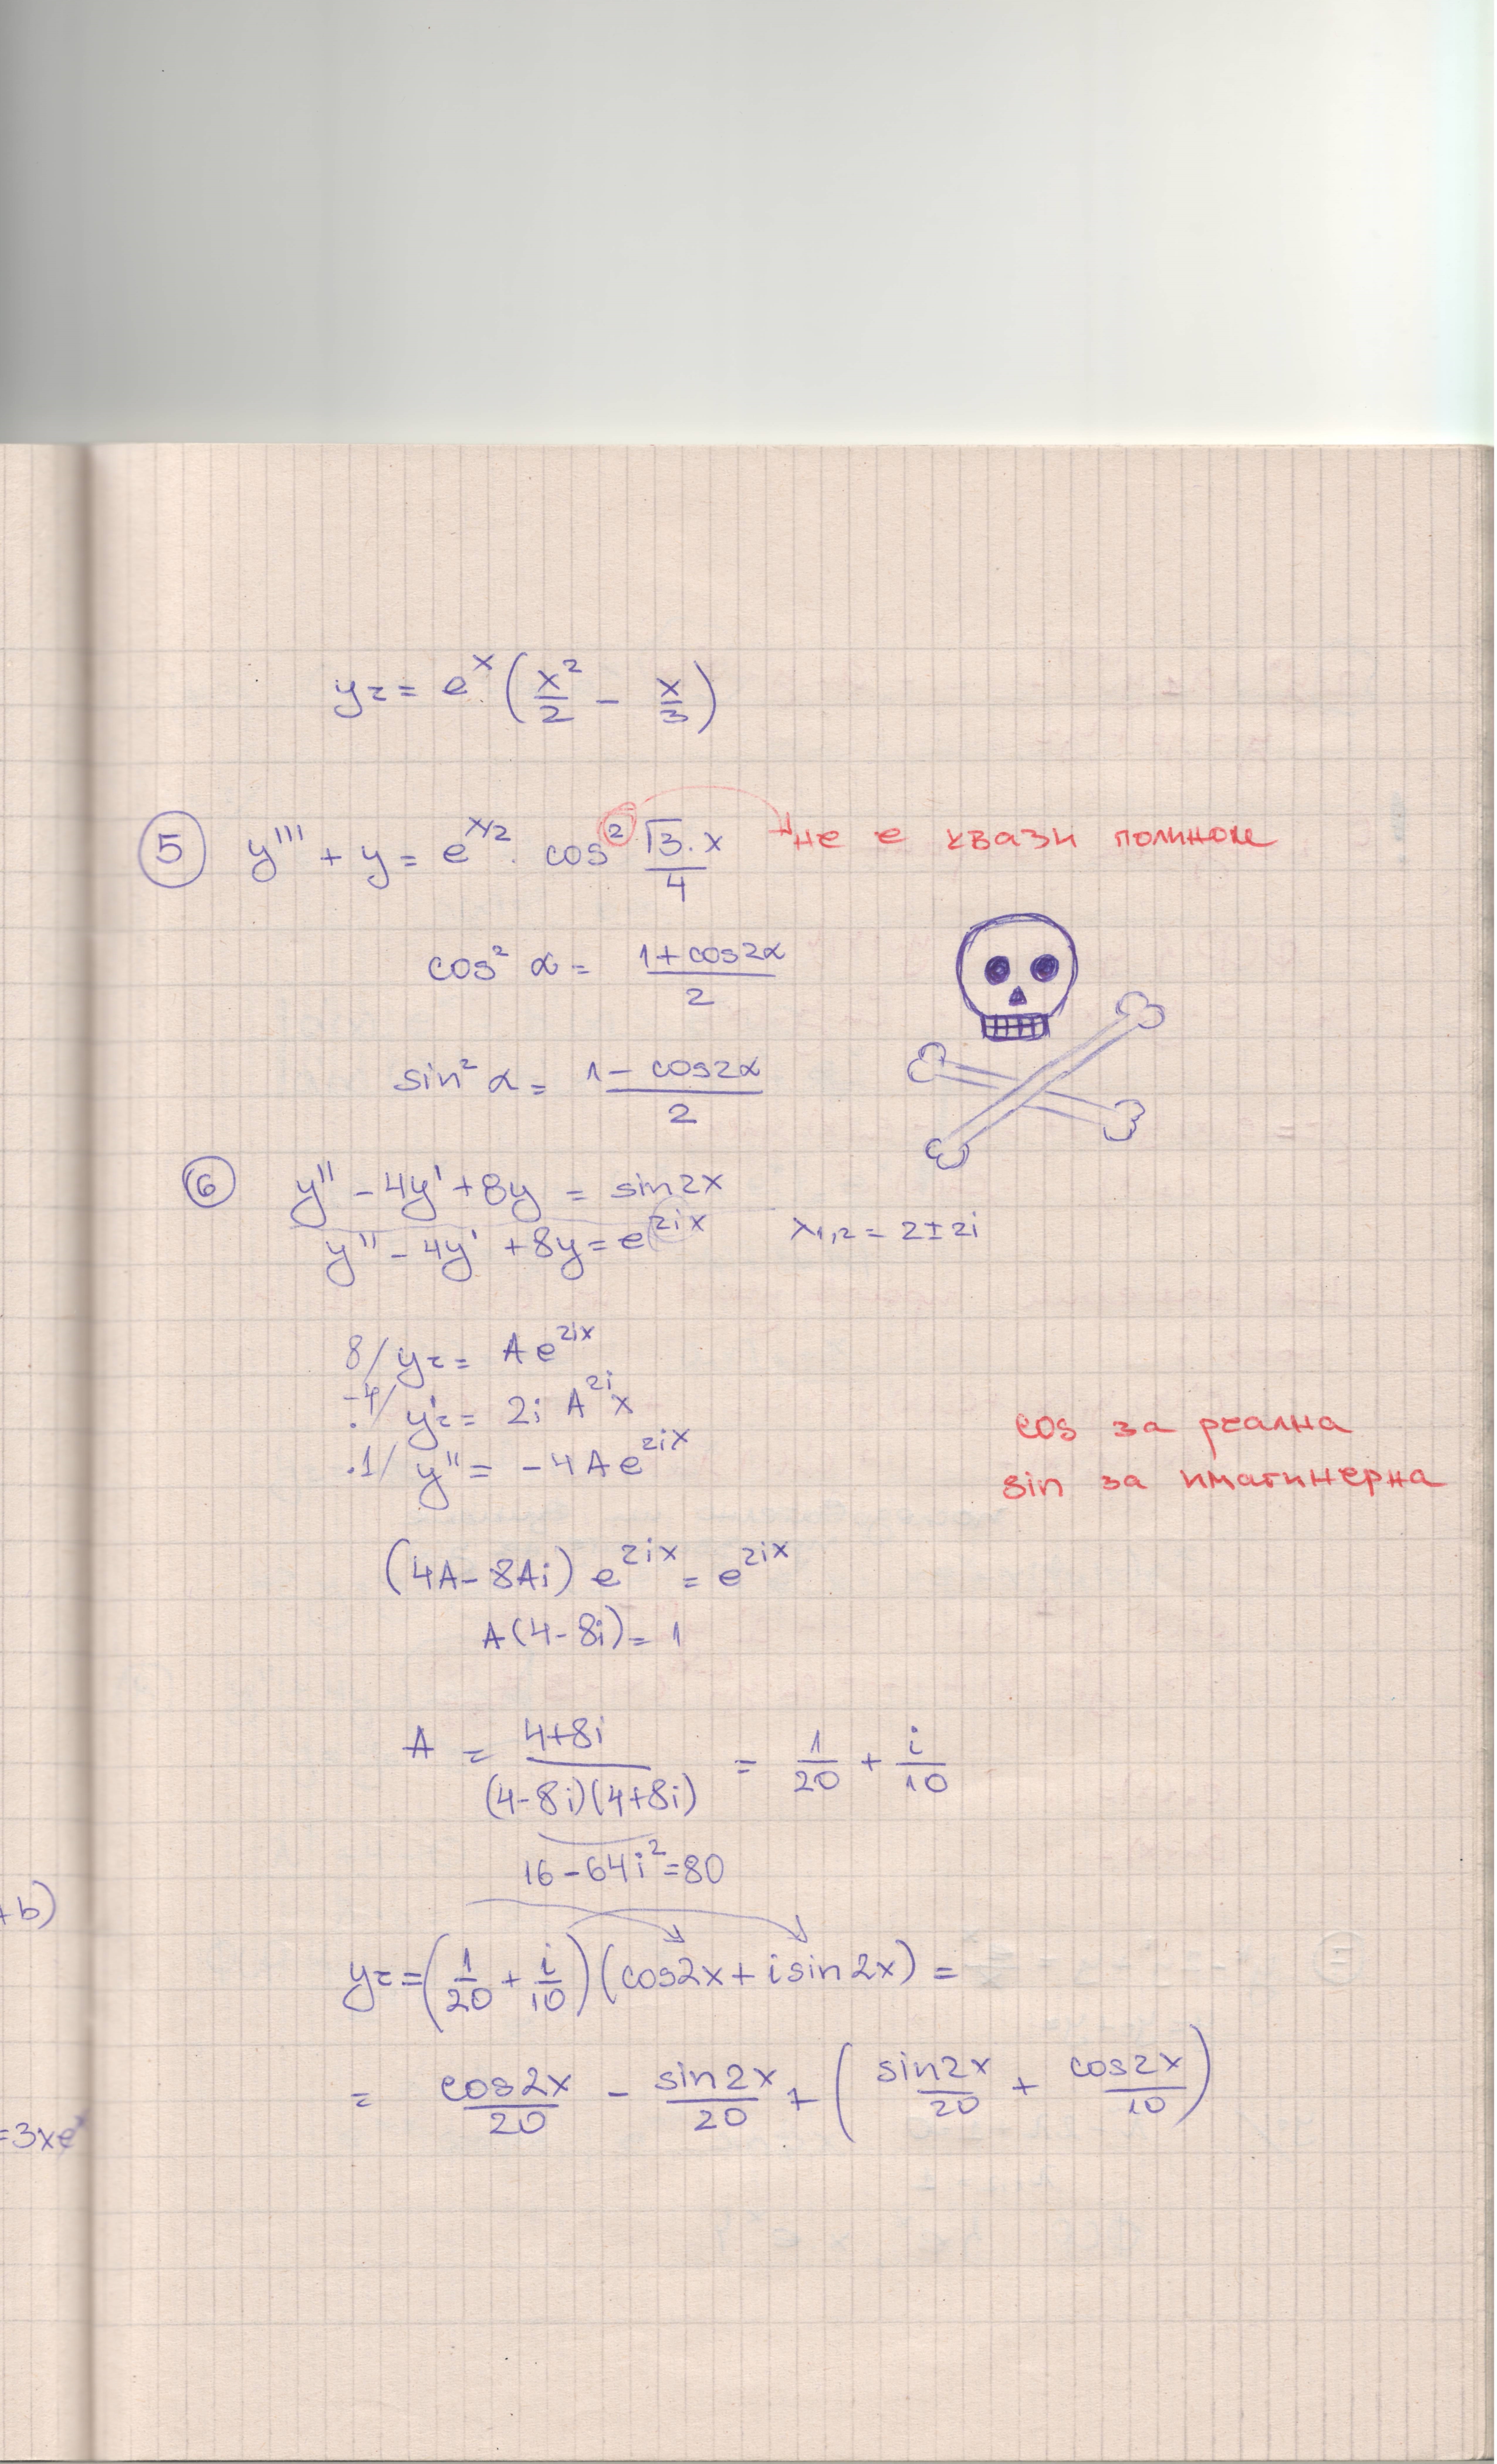 yz = e^x (x²/2 - x/3)
5 y''' + y = e^(x/2) . cos² √3.x/4 не е квази полином
cos² α = (1+cos2α)/2
sin² α = (1-cos2α)/2
6 y'' - 4y' + 8y = sin2x
y'' - 4y' + 8y = e^(2ix) λ1,2 = 2±2i
8/ yz = A e^(2ix)
.-4/ y'z = 2i A^(2i) x
.1/ y'' = -4Ae^(2ix)
cos за реална
sin за имагинерна
(4A-8Ai) e^(2ix) = e^(2ix)
A(4-8i) = 1
A = (4+8i)/((4-8i)(4+8i)) = 1/20 + i/10
16-64i²=80
+b)
yz = (1/20 + i/10)(cos2x + isin2x) =
= cos2x/20 - sin2x/20 + (sin2x/20 + cos2x/10)
=3xe^x